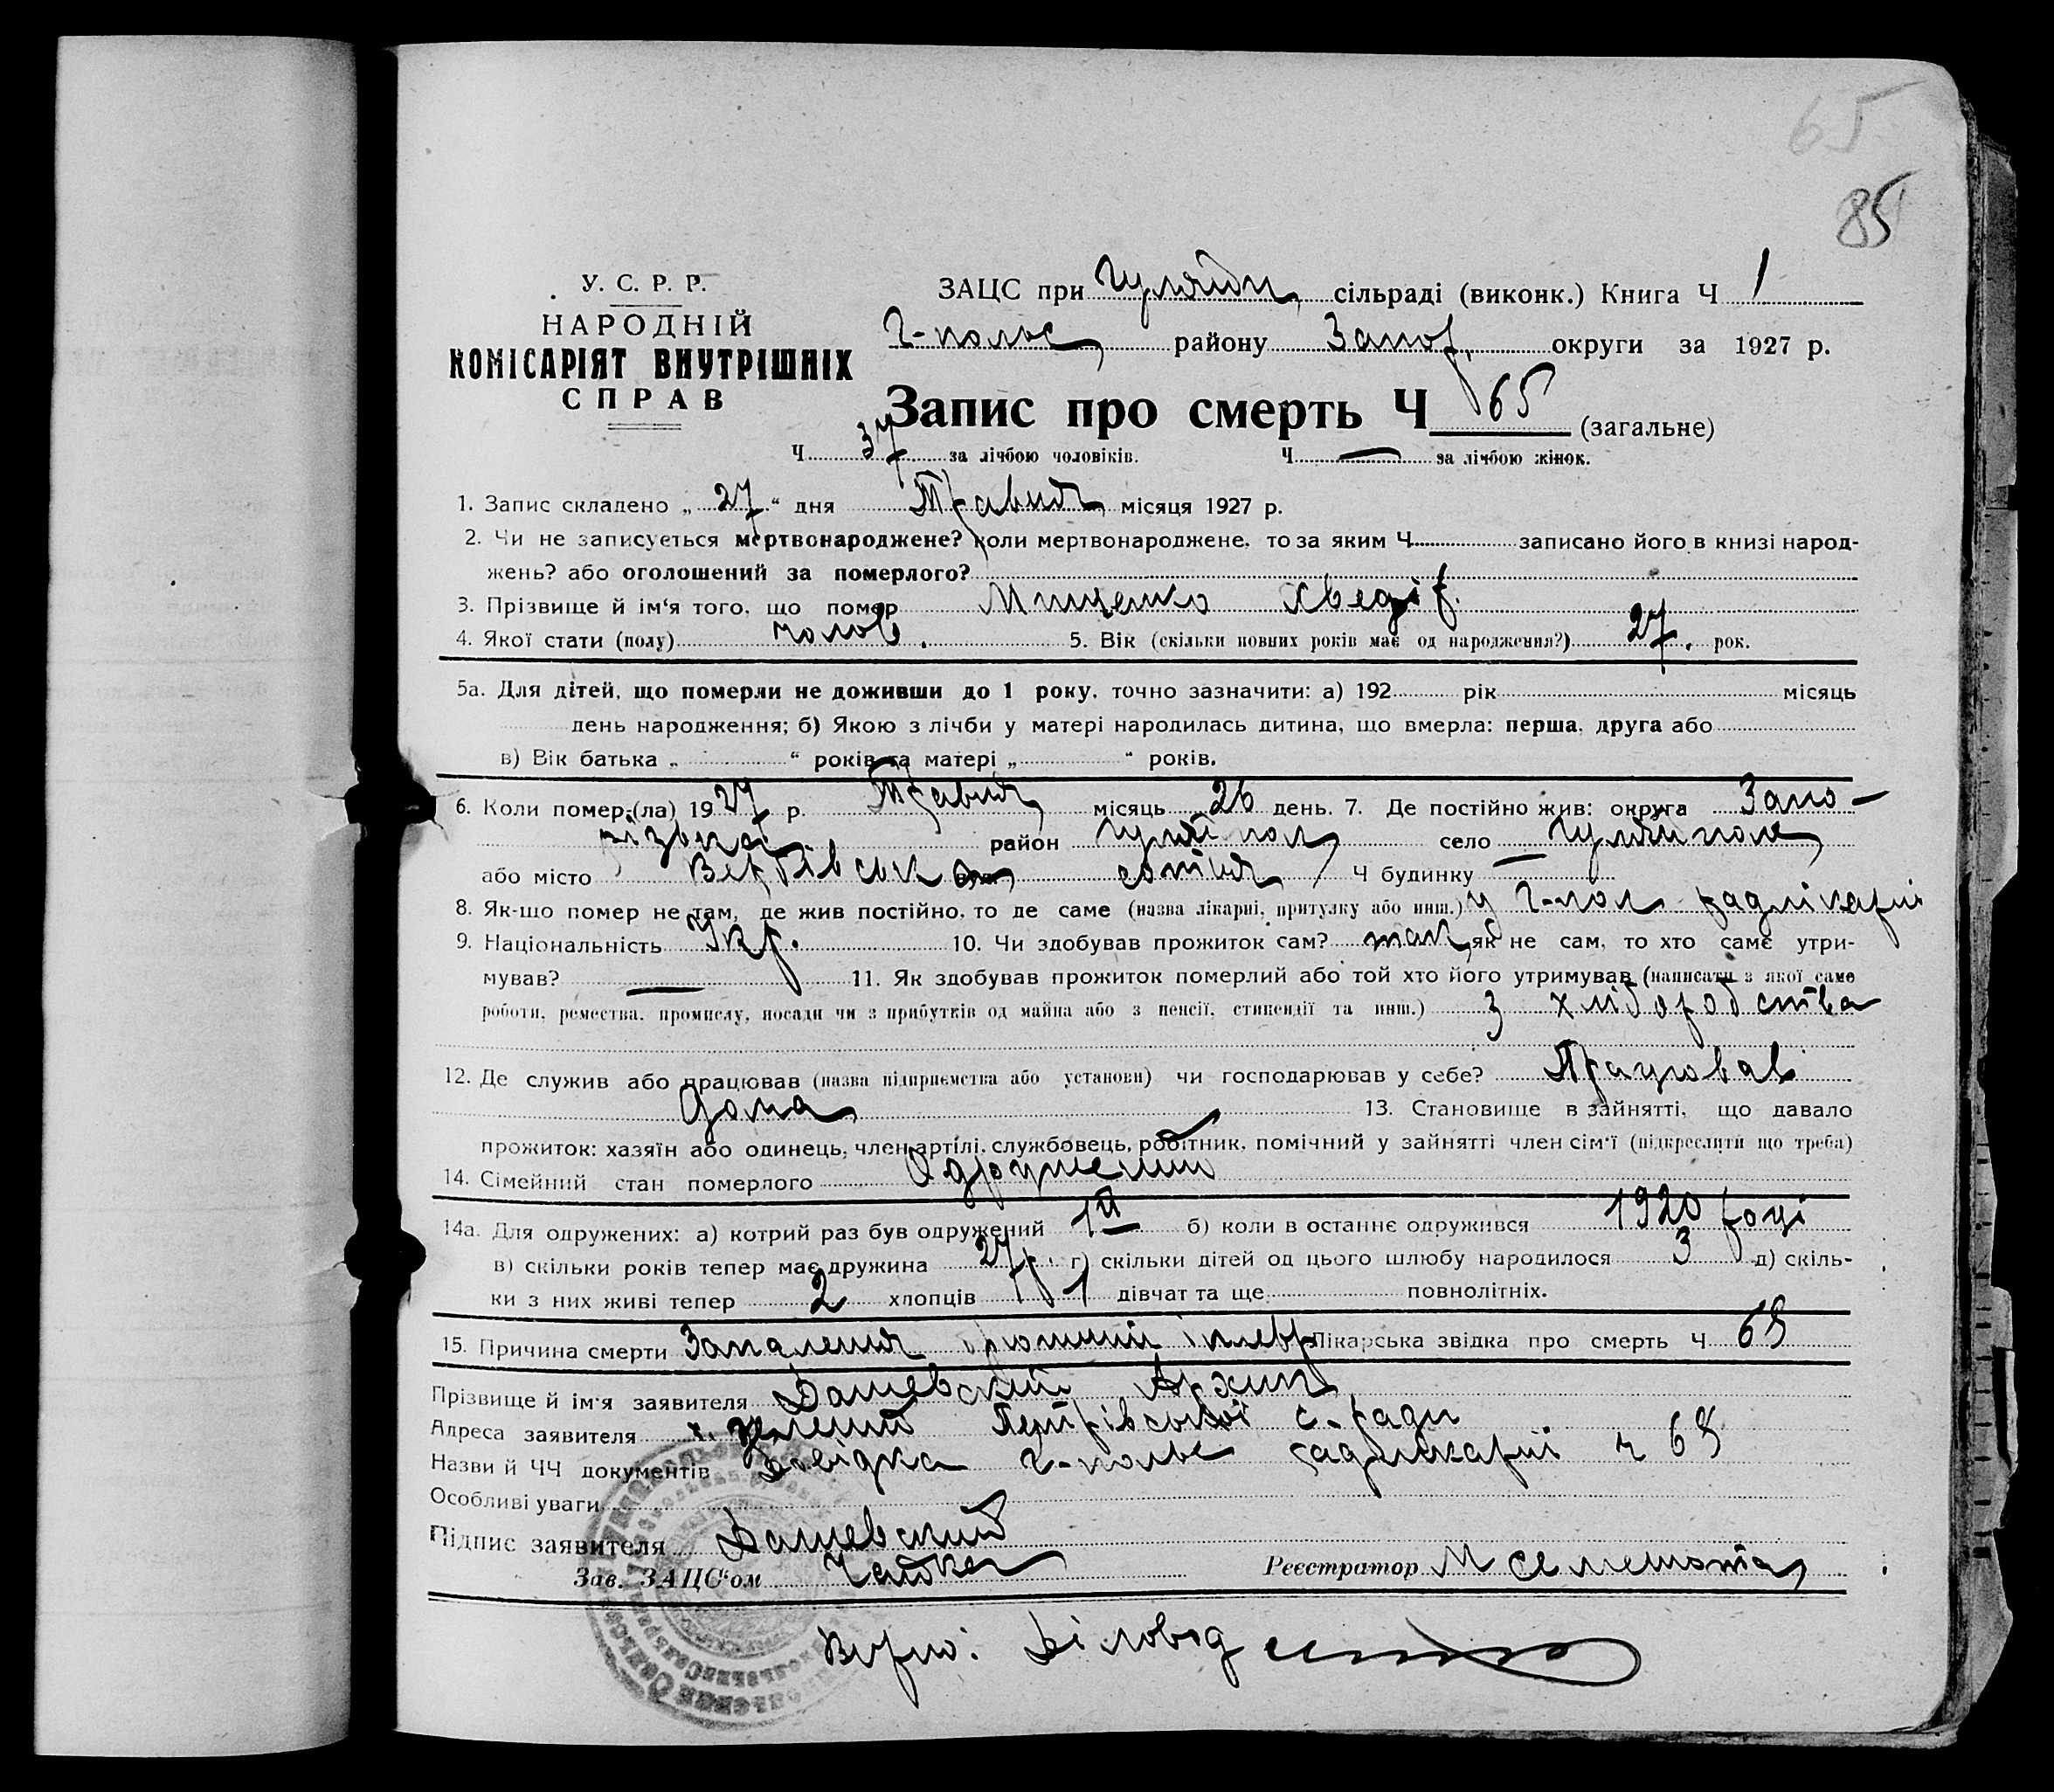 65
85
У. С. Р. Р.
НАРОДНІЙ
КОМІСАРІЯТ ВНУТРІШНІХ
СПРАВ
ЗАЦС при Гуляйп. сільраді (виконк.) Книга Ч 1
Г-польс. району Запор. округи за 1927 р.
Запис про смерть Ч 65 (загальне)
Ч 37 за лічбою чоловіків. Ч — за лічбою жінок.
1. Запис складено „ 27 “ дня Травня місяця 1927 р.
2. Чи не записується мертвонароджене? коли мертвонароджене, то за яким Ч записано його в книзі народ-
жень? або оголошений за померлого?
3. Прізвище й ім‘я того, що помер Мищенко Хведір.
4. Якої стати (полу) чолов. 5. Вік (скільки повних років має од народження?) 27. рок.
5а. Для дітей, що померли не доживши до 1 року, точно зазначити: а) 192 рік місяць
день народження; б) Якою з лічби у матері народилась дитина, що вмерла: перша, друга або
в) Вік батька „ “ років та матері „ “ років.
6. Коли помер-(ла) 1927 р. Травня місяць 26 день. 7. Де постійно жив: округа Запо-
різька район Гуляйпол. село — Гуляйполе
або місто Вербівська сотня Ч будинку —
8. Як-що помер не там, де жив постійно, то де саме (назва лікарні, притулку або инш.) у Г-пол радлікарні
9. Національність Укр. 10. Чи здобував прожиток сам? так як не сам, то хто саме утри-
мував? — 11. Як здобував прожиток померлий або той хто його утримував (написати з якої саме
роботи, ремества, промислу, посади чи з прибутків од майна або з пенсії, стипендії та инш.) з хліборобства
12. Де служив або працював (назва підприємства або установи) чи господарював у себе? Працював
дома 13. Становище в зайнятті, що давало
прожиток: хазяїн або одинець, член артілі, службовець, робітник, помічний у зайнятті член сім‘ї (підкреслити що треба)
14. Сімейний стан померлого Одружений
14а. Для одружених: а) котрий раз був одружений 1й б) коли в останнє одружився 1920 році
в) скільки років тепер має дружина 27. г) скільки дітей од цього шлюбу народилося 3 д) скіль-
ки з них живі тепер 2 хлопців 1 дівчат та ще повнолітніх.
15. Причина смерти Запалення і плевр Лікарська звідка про смерть Ч 68
Прізвище й ім‘я заявителя Дашевский Архип
Адреса заявителя х. Петрівської с-ради
Назви й ЧЧ документів Довідка Г-польс радлікарні ч 68
Особливі уваги
Підпис заявителя Дашевский
Зав. ЗАЦС‘ом
Реєстратор М
Вірно: Діловод